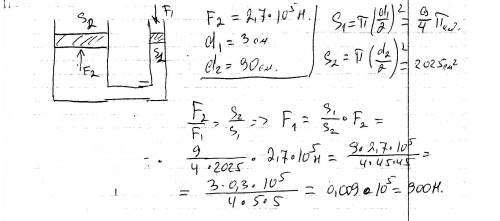 S₂
F₁
S₁
F₂
F₂ = 2,7·10⁵ Н.
d₁ = 3 см
d₂ = 90 см.
S₁ = π(d₁/2)² = 9/4 π см².
S₂ = π(d₂/2)² = 2025 см²
F₂/F₁ = S₂/S₁ => F₁ = S₁/S₂ · F₂ =
9/(4·2025) · 2,7·10⁵ Н = (9·2,7·10⁵)/(4·45·45) =
= (3·0,3·10⁵)/(4·5·5) = 0,009·10⁵ = 900 Н.